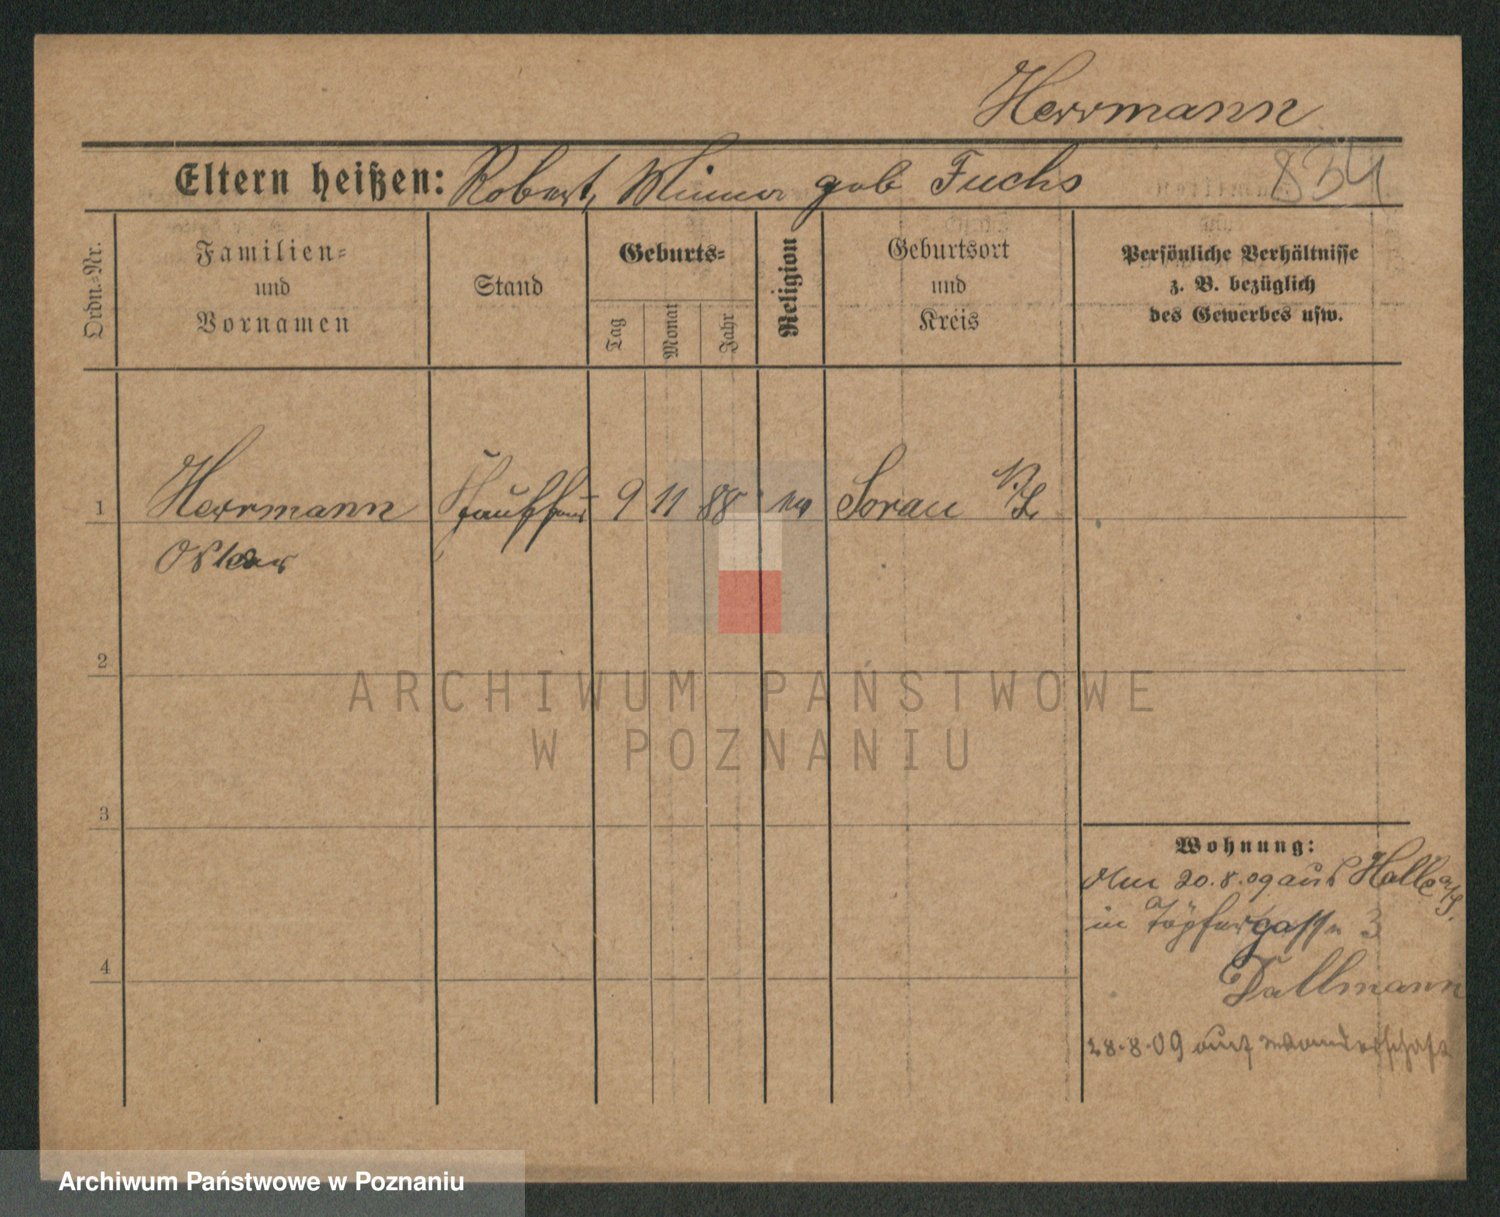 Herrmann
Eltern heißen: Robert, Minna geb Fuchs
834
Ordn.-Nr.
Familien-
und
Vornamen
Stand
Geburts-
Tag
Monat
Jahr
Religion
Geburtsort
und
Kreis
Persönliche Verhältnisse
z. B. bezüglich
des Gewerbes usw.
1
Herrmann
9 11 88
Sorau N/L
Oskar
2
ARCHIWUM PAŃSTWOWE
W POZNANIU
3
Wohnung:
Am 20.8.09 aus Halle a/S.
in Töpfergasse 3
Dallmann
4
28.8.09 auf Wanderschaft
Archiwum Państwowe w Poznaniu